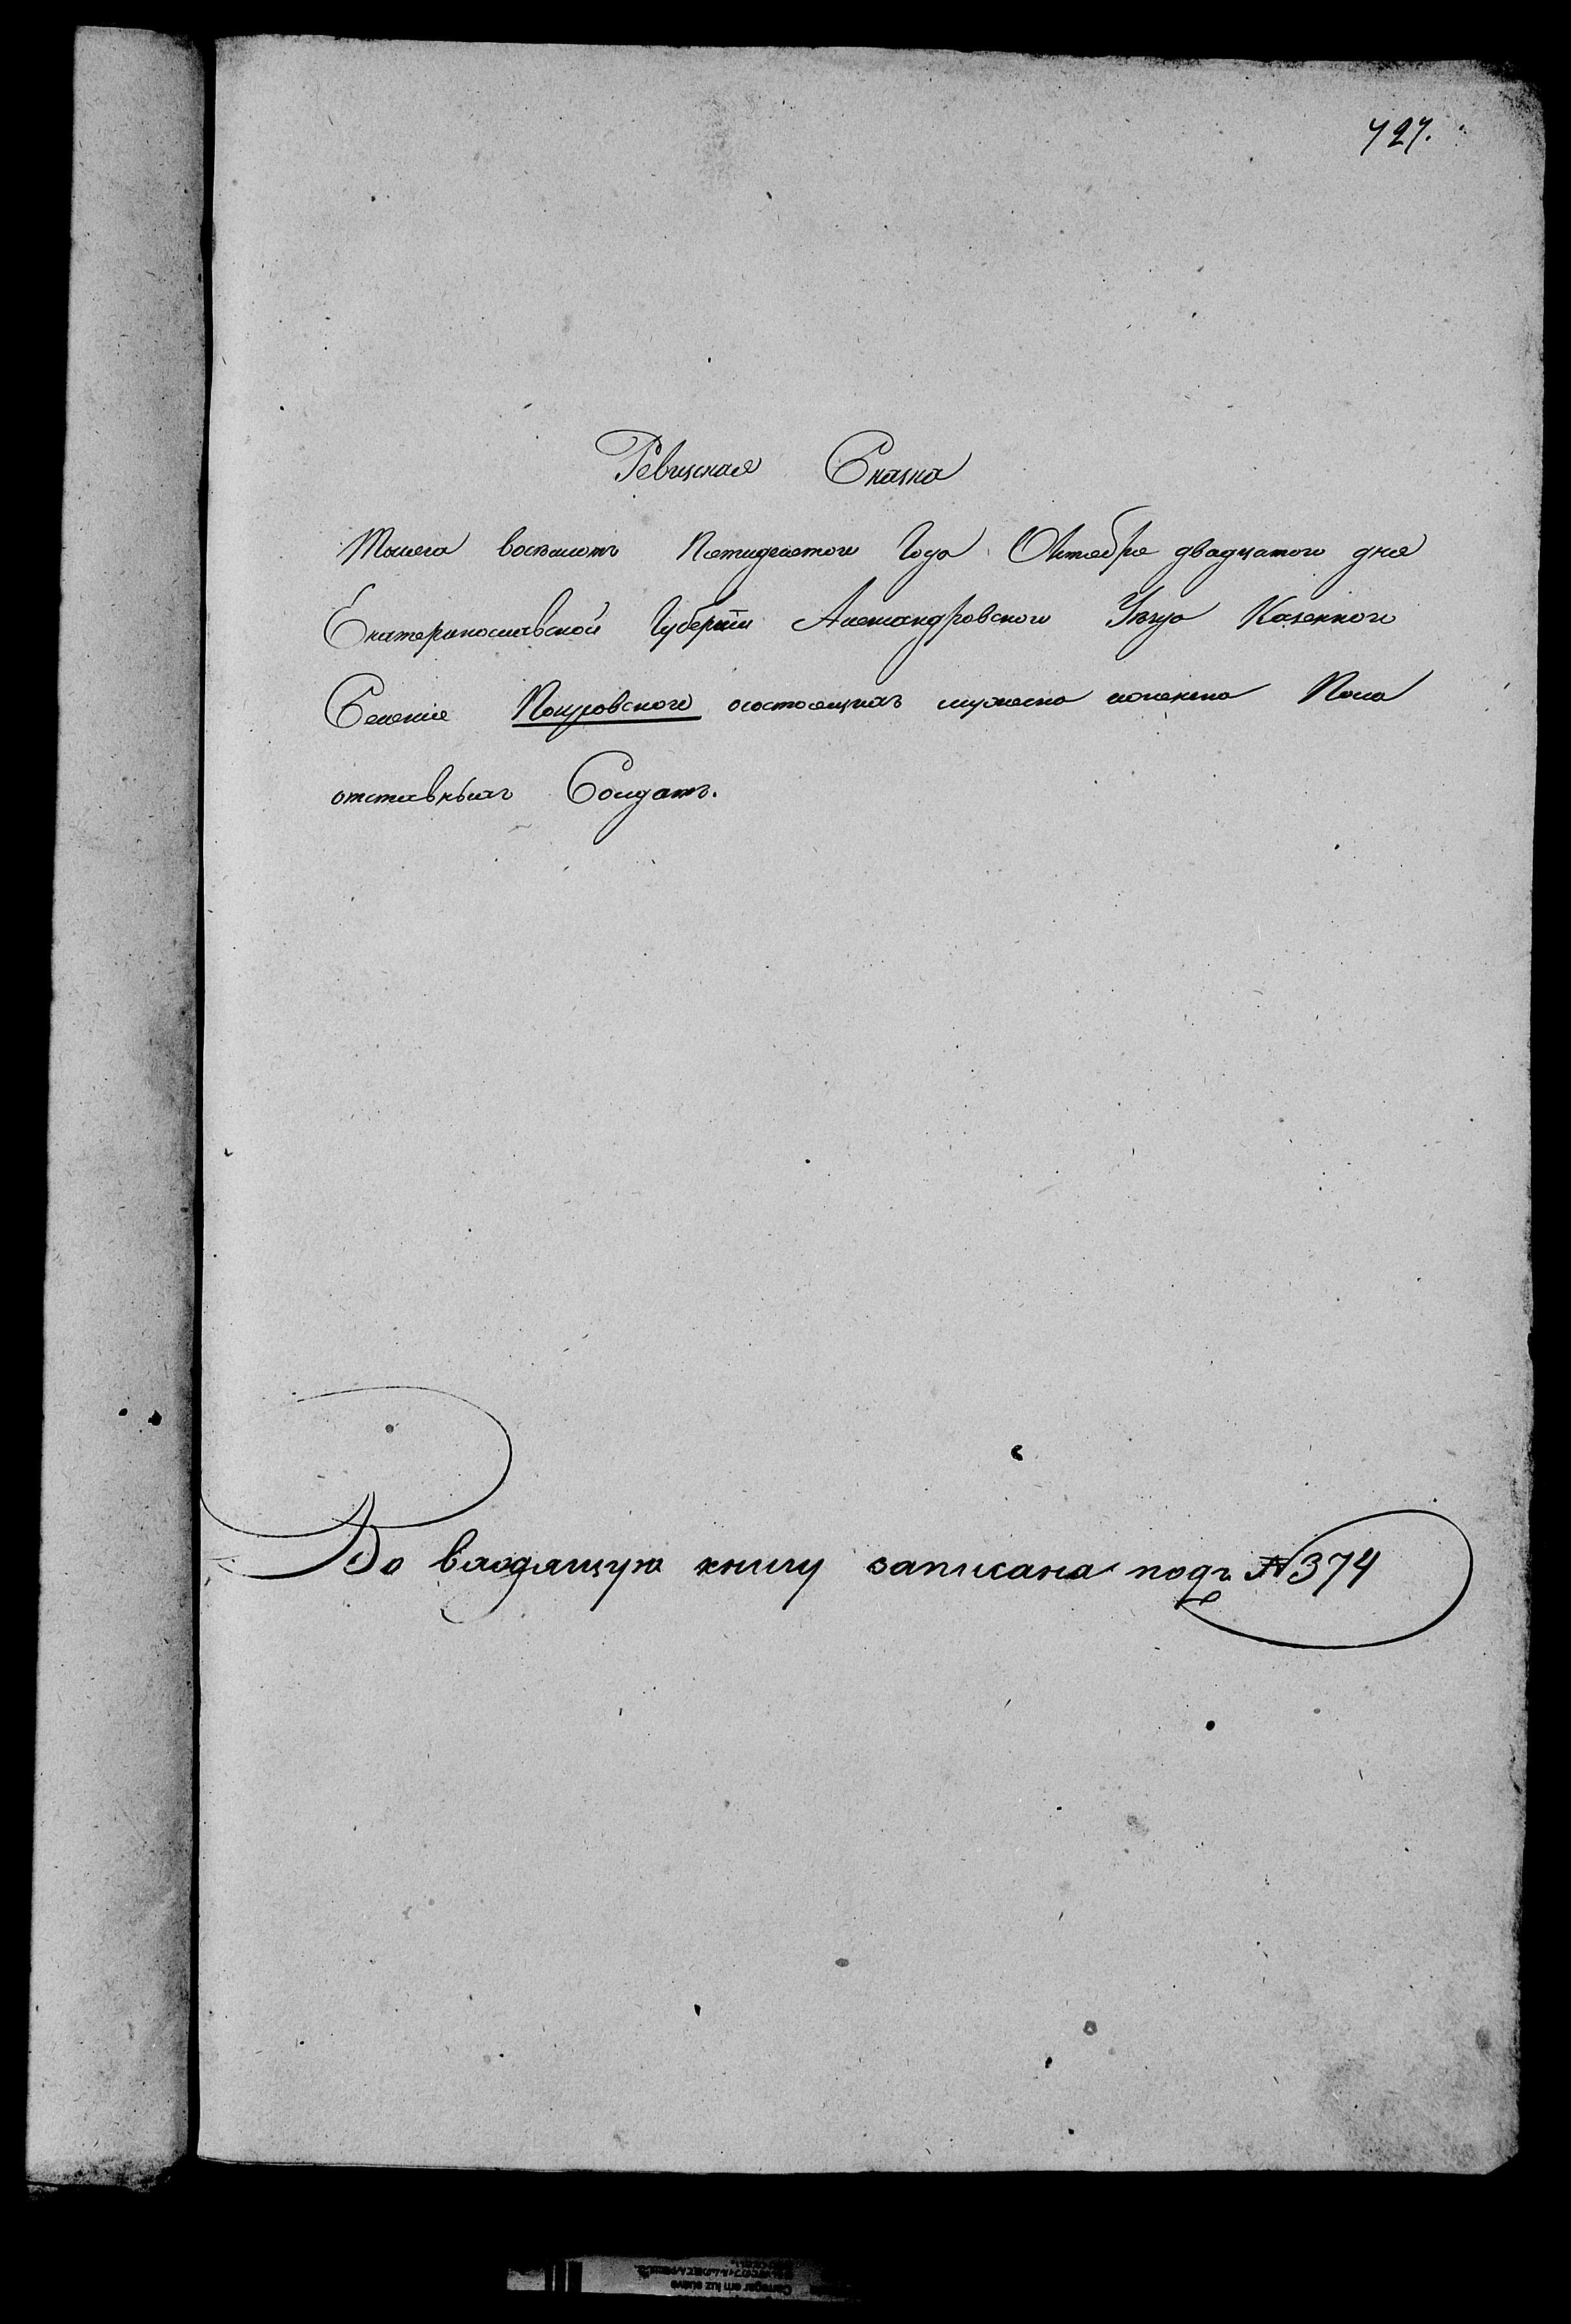 727.
Ревизская Сказка
Тысеча восемсотъ Петидесятого Года Октебре двадцатого дня
Екатеринославской Губернии Александровского Уезда Казенного
Селение Покровского осостоящихъ мужеска иоженска Пола
отставныхъ Солдатъ.
Во входящую книгу записана подъ №374